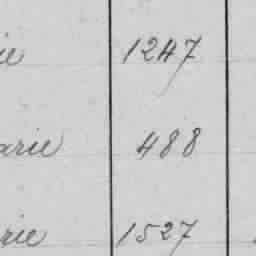 ie 1247
arie 488
rie 1527